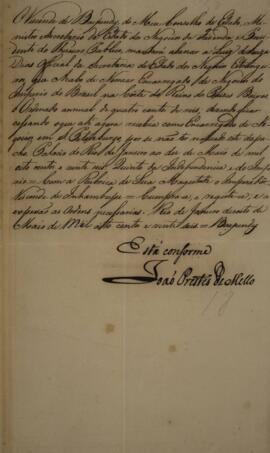 O Visconde de Baependy, do Meu Conselho de Estado, Mi-
nistro e Secretario de Estado dos Negocios da Fazenda, e Presi-
dente do Thesouro Publico, mande abonar a Luiz de Souza
Dias, Official da Secretaria de Estado dos Negocios Estrangei-
ros que Acabo de Nomear Encarregado de Negocios do
Imperio do Brasil na Corte do Reino dos Paizes Baixos
o Ordenado annual de quatro contos de reis,
cessando o que até agora recebia como Encarregado de Ne-
gocios em S. Petersburgo por se não ter
Palacio do Rio de Janeiro aos dez de Maio de mil
oito centos e vinte seis Quinto da Independencia, e do Impe-
rio = Com a Rubrica de Sua Magestade o Imperador =
Visconde de Inhambupe = Cumpra-se, e registe-se, e se
expeção as Ordens necessarias. Rio de Janeiro de
Maio de Mil oito centos e vinte seis = Baependy
Está conforme
João Prestes de Mello